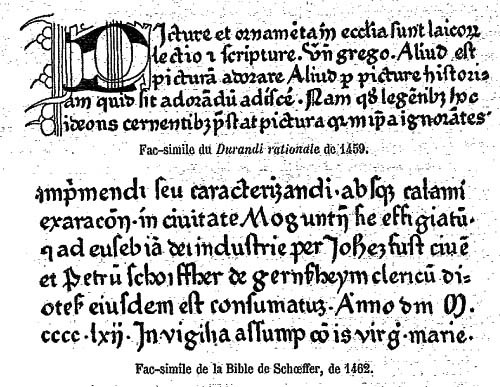 Picture et ornamēta in ecclīa sunt laicoꝝ
lectio ⁊ scripture. Vñ grego. Aliud est
picturā adorare Aliud ꝑ picture histori-
am quid sit adorādū adiscē. Nam qd̄ legētibꝫ
ideoris cernentibꝫ p̄stat pictura
Fac-simile du Durandi rationale de 1459.
imp̄mendi seu caracterizandi. absqꝫ calami
exaracōn̄. in ciuitate Moguntn̄ sic effigiatū.
⁊ ad eusebiā dei industrie per Johēꝫ fust ciuē
et Petrū schoiffher de gernsheym clericū di-
otes̄ eiusdem est consumatuꝫ. Anno dm̄ M.
cccc. lxij. In vigilia assumpcōis virḡ. marie.
Fac-simile de la Bible de Schœffer, de 1462.